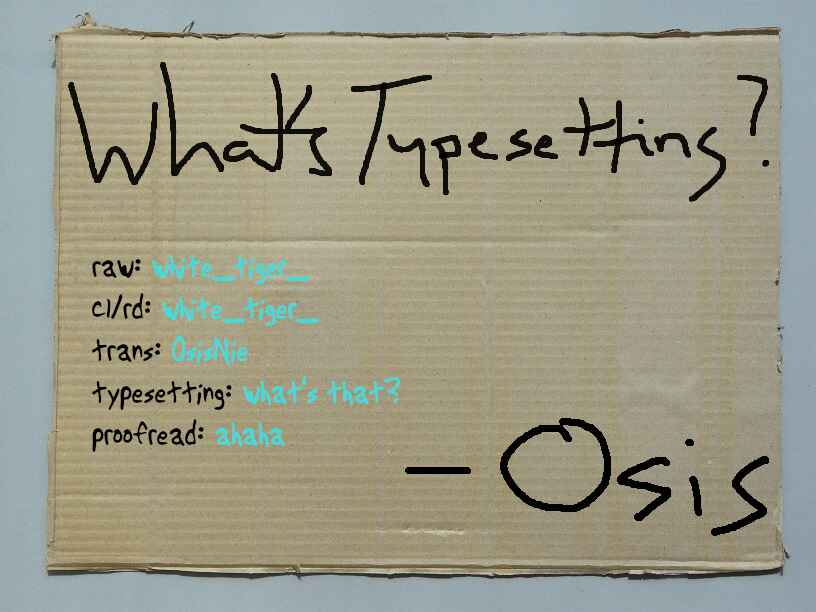 What's Typesetting?
raw: white_tiger_
cl/rd: white_tiger_
trans: OsisNie
typesetting: what's that?
proofread: ahaha
- Osis